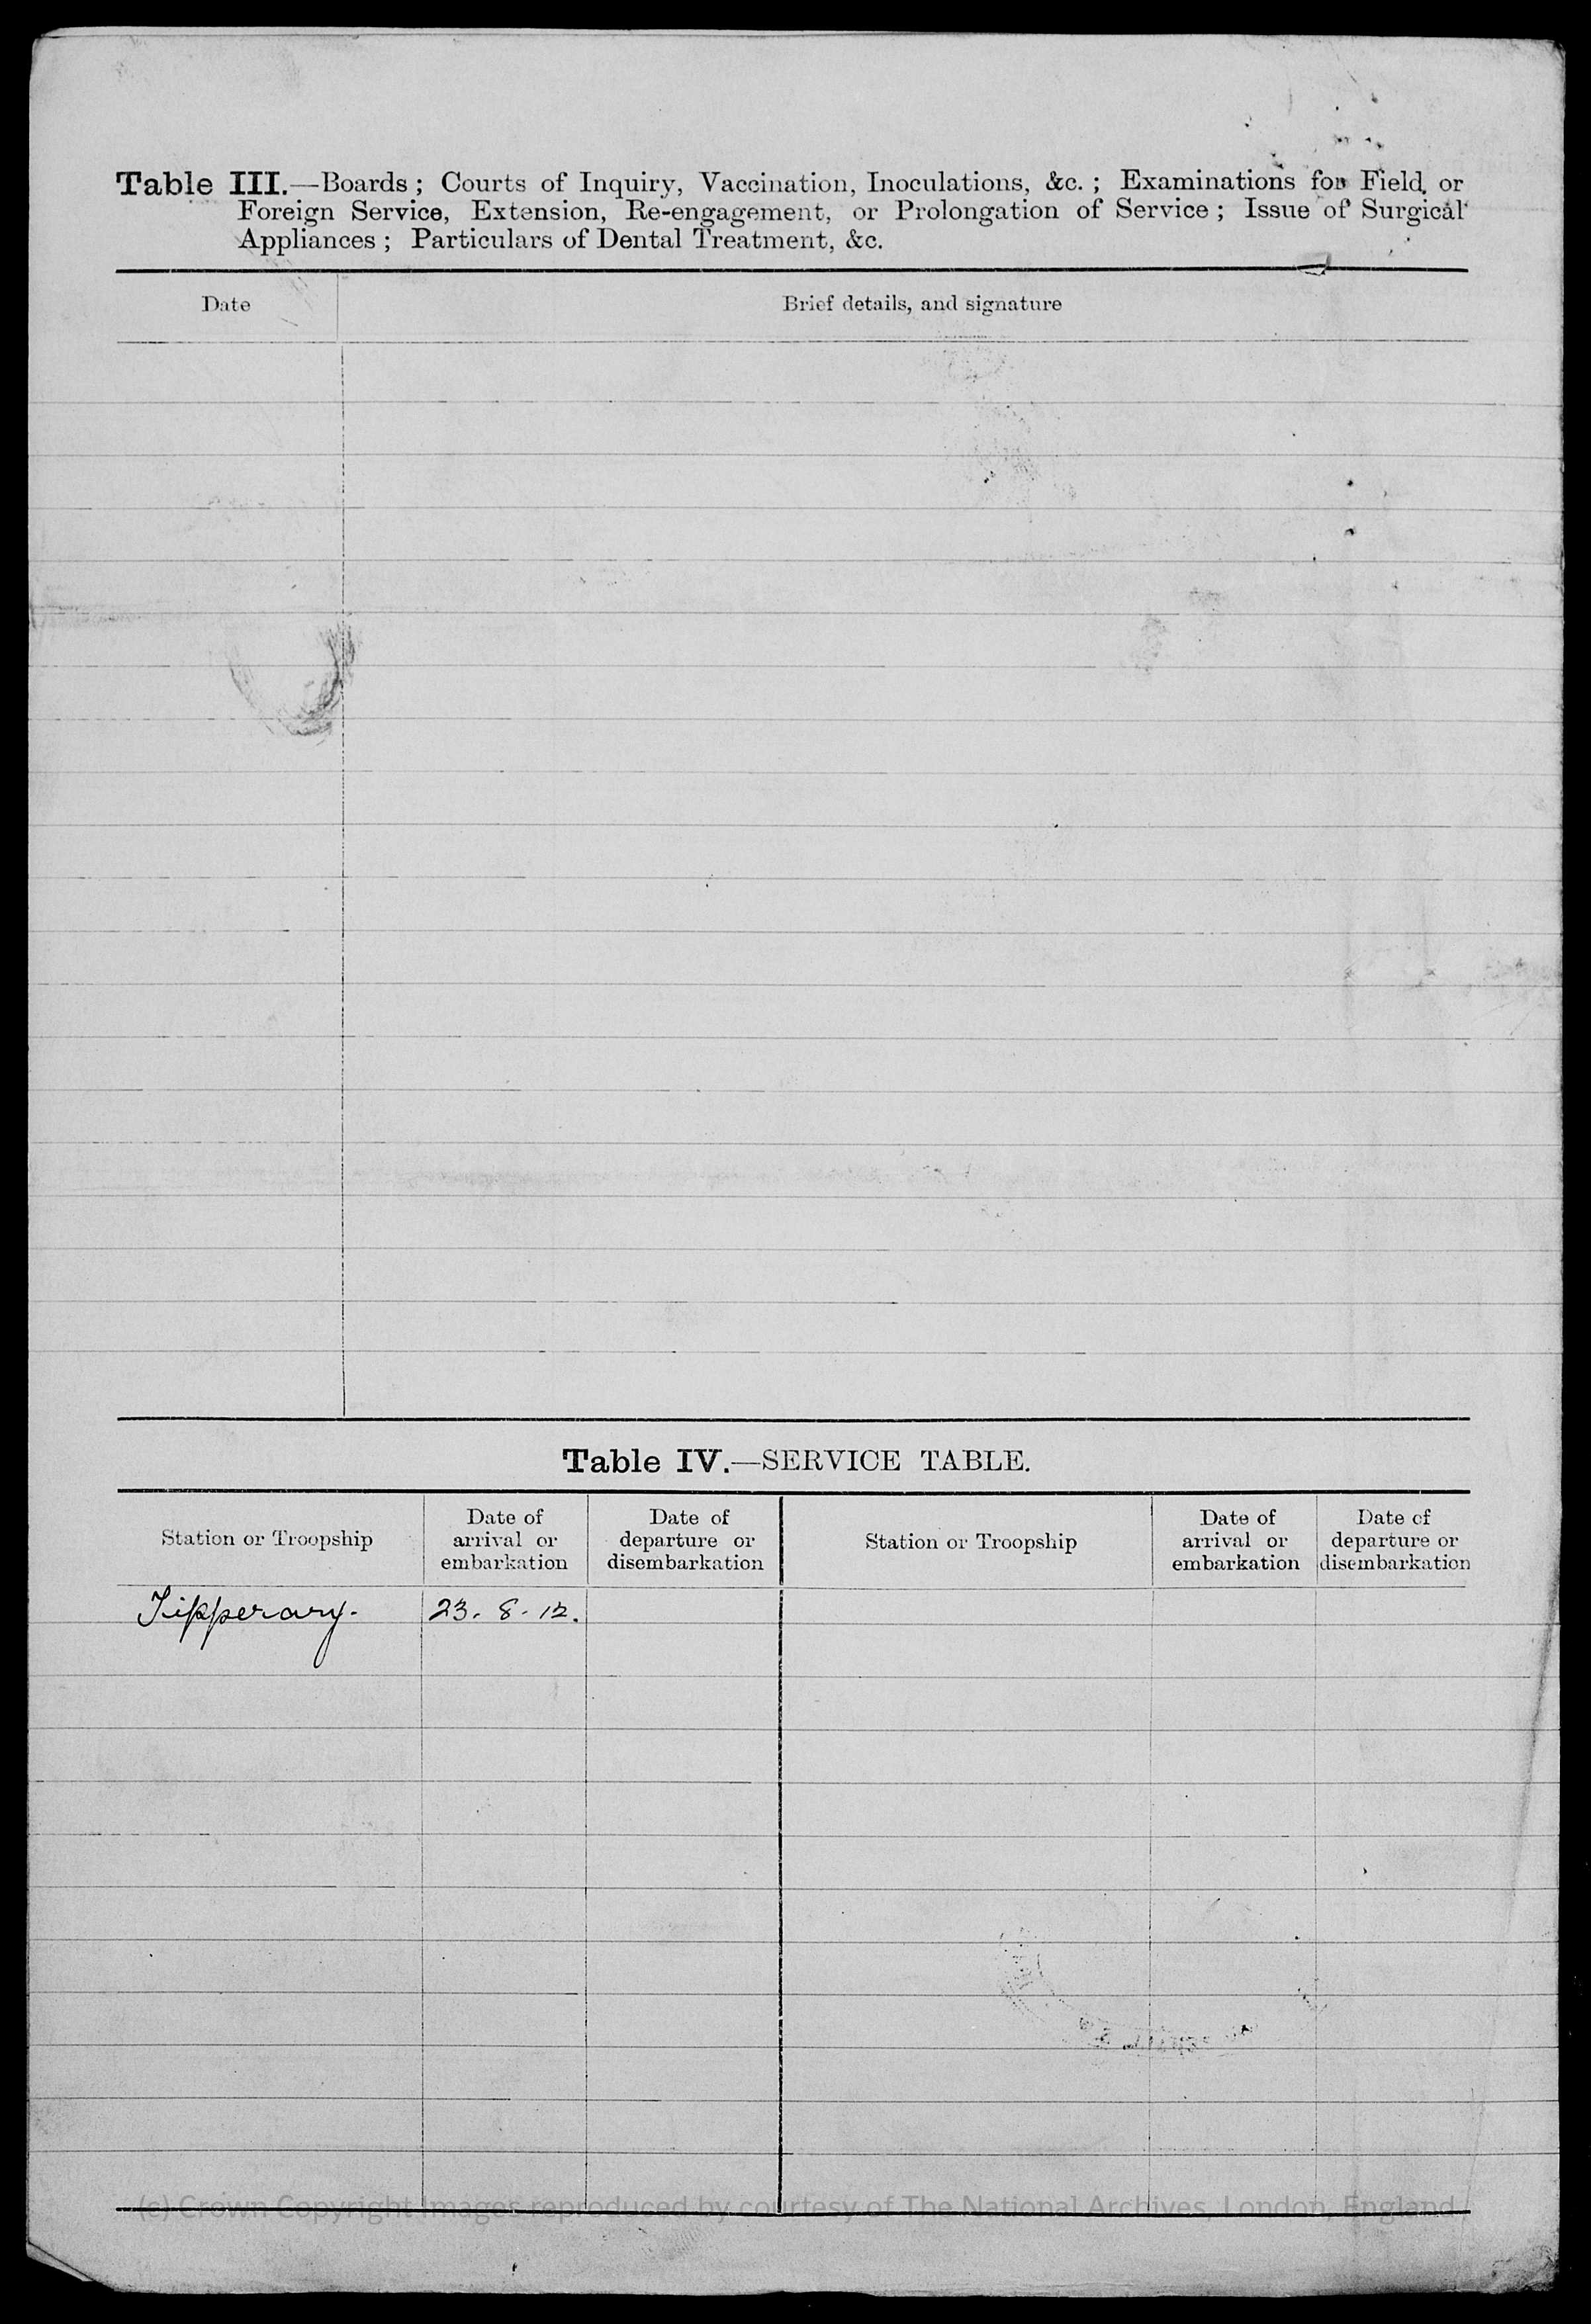 Table III.—Boards ; Courts of Inquiry, Vaccination, Inoculations, &c. ; Examinations for Field or
Foreign Service, Extension, Re-engagement, or Prolongation of Service ; Issue of Surgical
Appliances ; Particulars of Dental Treatment, &c.
Date
Brief details, and signature
Table IV.—SERVICE TABLE.
Station or Troopship
Date of
arrival or
embarkation
Date of
departure or
disembarkation
Station or Troopship
Date of
arrival or
embarkation
Date of
departure or
disembarkation
Tipperary.
23. 8. 12.
(c) Crown Copyright Images reproduced by courtesy of The National Archives, London, England